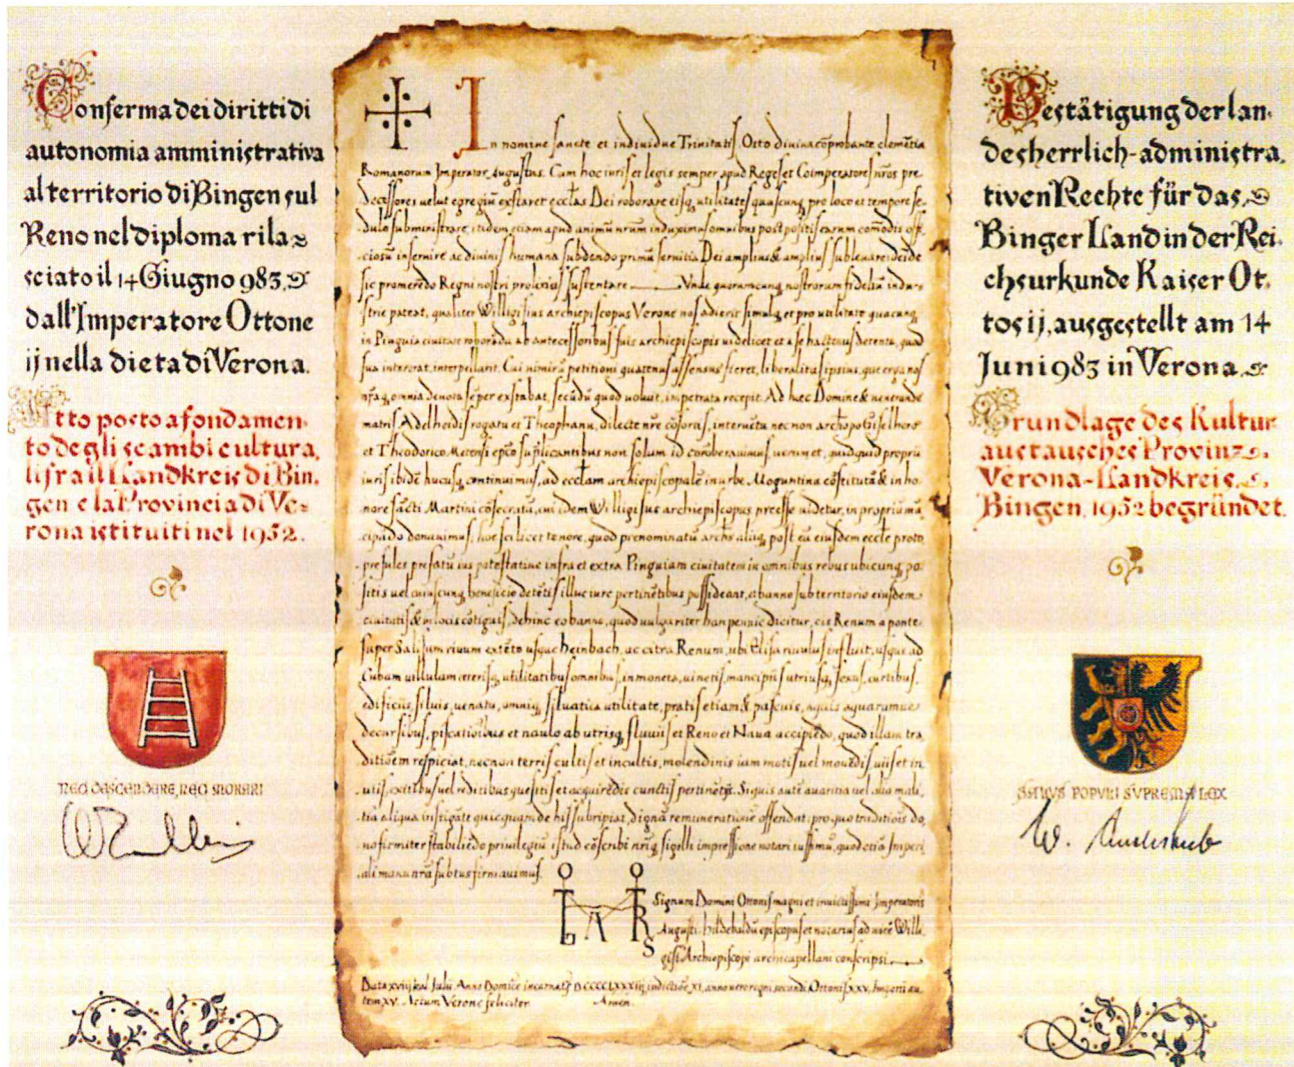 Conferma dei diritti di
autonomia amministrativa
al territorio di Bingen sul
Reno nel diploma rila
sciato il 14 Giugno 983
dall'Imperatore Ottone
ij nella dieta di Verona.
Atto posto a fondamen
to degli scambi cultura
li fra il Landkreis di Bin
gen e la Provincia di Ve
rona istituiti nel 1952.
NEC DESCENDERE, NEC MORARI
In nomine sancte et individue Trinitatis Otto divina cōprobante clemētia
Romanorum Imperator Augustus. Cum hoc iuris et legis semper apud Reges et Coimperatores nr̄os pre
decessores velut egregiū exstaret eccl̄as Dei roborare eisq, utilitates quascunq, pro loco et tempore se
dulo subministrare, itidem etiam apud animū nrum induximus omnibus postpositis earum comodis offi
ciosū inservire ac divinis humana subdendo primū servitia Dei amplius & amplius sublevare: deīde
sic promerēdo Regni nostri provincias sustentare Unde quorumcunq, nostrorum fidelium indu
strie pateat, qualiter Willigisius archiepiscopus Verone nos adierit simulq, et pro utilitate quacunq,
in Pinguia civitate roborādā ab antecessoribus suis archiepiscopis videlicet et a se hactenus detenta, quod
sua intererat, interpellarit. Cui nimirū petitioni quatenus assensus fieret, liberalitas ipsius, que erga nos
nr̄aq, omnia devota sēper exstabat, secūdū quod voluit, impetrata recepit. Ad hec Domine & venerande
matris Adelheidis rogatu et Theophanu, dilecte nr̄e cōsortis, interventu nec non archiepo Giselhero
et Theodorico Metensi epc̄o suplicantibus non solum id corroboravimus, verum et, quidquid proprii
iuris ibidē hucusq, continuimus, ad eccl̄am archiepiscopalē in urbe Moguntina cōstitutā & in ho
nore sācti Martini cōsecratā, cui idem Willigisus archiepiscopus preesse videtur, in propriū mā
cipādo donavimus, hoc scilicet tenore, quod prenominatū archs aliiq, post eū eiusdem eccle proto
presules prefatū ius potestative infra et extra Pinguiam civitatem in omnibus rebus ubicunq, po
sitis vel cuiuscunq, beneficio detētis illuc iure pertinētibus possideant, et banno sub territorio eiusdem
civitatis & in locis cōtiguis, dehinc eo banno, quod vulgariter hanpennic dicitur, cis Renum a ponte
super Salisum rivum extēto usque heinbach, ac citra Renum, ubi Elisa rivulus influit, usque ad
Cubam villulam ceterisq, utilitatibus omnibus, in moneta, vinetis, mancipiis utriusq, sexus, curtibus,
edificiis, silvis, venatu, omniq, silvatica utilitate, pratis etiam & pascuis, aquis aquarumve
decursibus, piscationibus et naulo ab utrisq, fluviis et Reno et Nava accipiēdo, quod illam tra
ditiōem respiciat, necnon terris cultis et incultis, molendinis iam motis vel movēdis, viis et in
viis, exitibus vel reditibus quesitis et acquirēdis cunctis pertinētiis. Siquis autē avaritia vel alia mali
tia aliqua instigāte quicquam de his subripiat, dignā remunerationē offendat: pro quo traditiōis do
no firmiter stabiliēdo privilegiū istud cōscribi nr̄iq, sigilli impressione notari iussimus, quod etiā Imperi
ali manu nr̄a subtus firmavimus.
Signum Domini Ottonis magni et invictissimi Imperatoris
Augusti. hildebaldus episcopus et notarius ad vicē Willi
gisi Archiepiscopi archicapellani conscripsi.
Data xviij kal. Julii Anno Domice incarnatiōs DCCCCLXXXIII, indictiōe XI, anno vero regni secundi Ottonis XXV, Imperii au
tem XV. Actum Verone feliciter Amen.
Bestätigung der lan
desherrlich-administra
tiven Rechte für das
Binger Land in der Rei
chsurkunde Kaiser Ot
tos ij, ausgestellt am 14
Juni 983 in Verona
Grundlage des Kultur
austausches Provinz
Verona-Landkreis
Bingen, 1952 begründet.
SALUS POPULI SUPREMA LEX